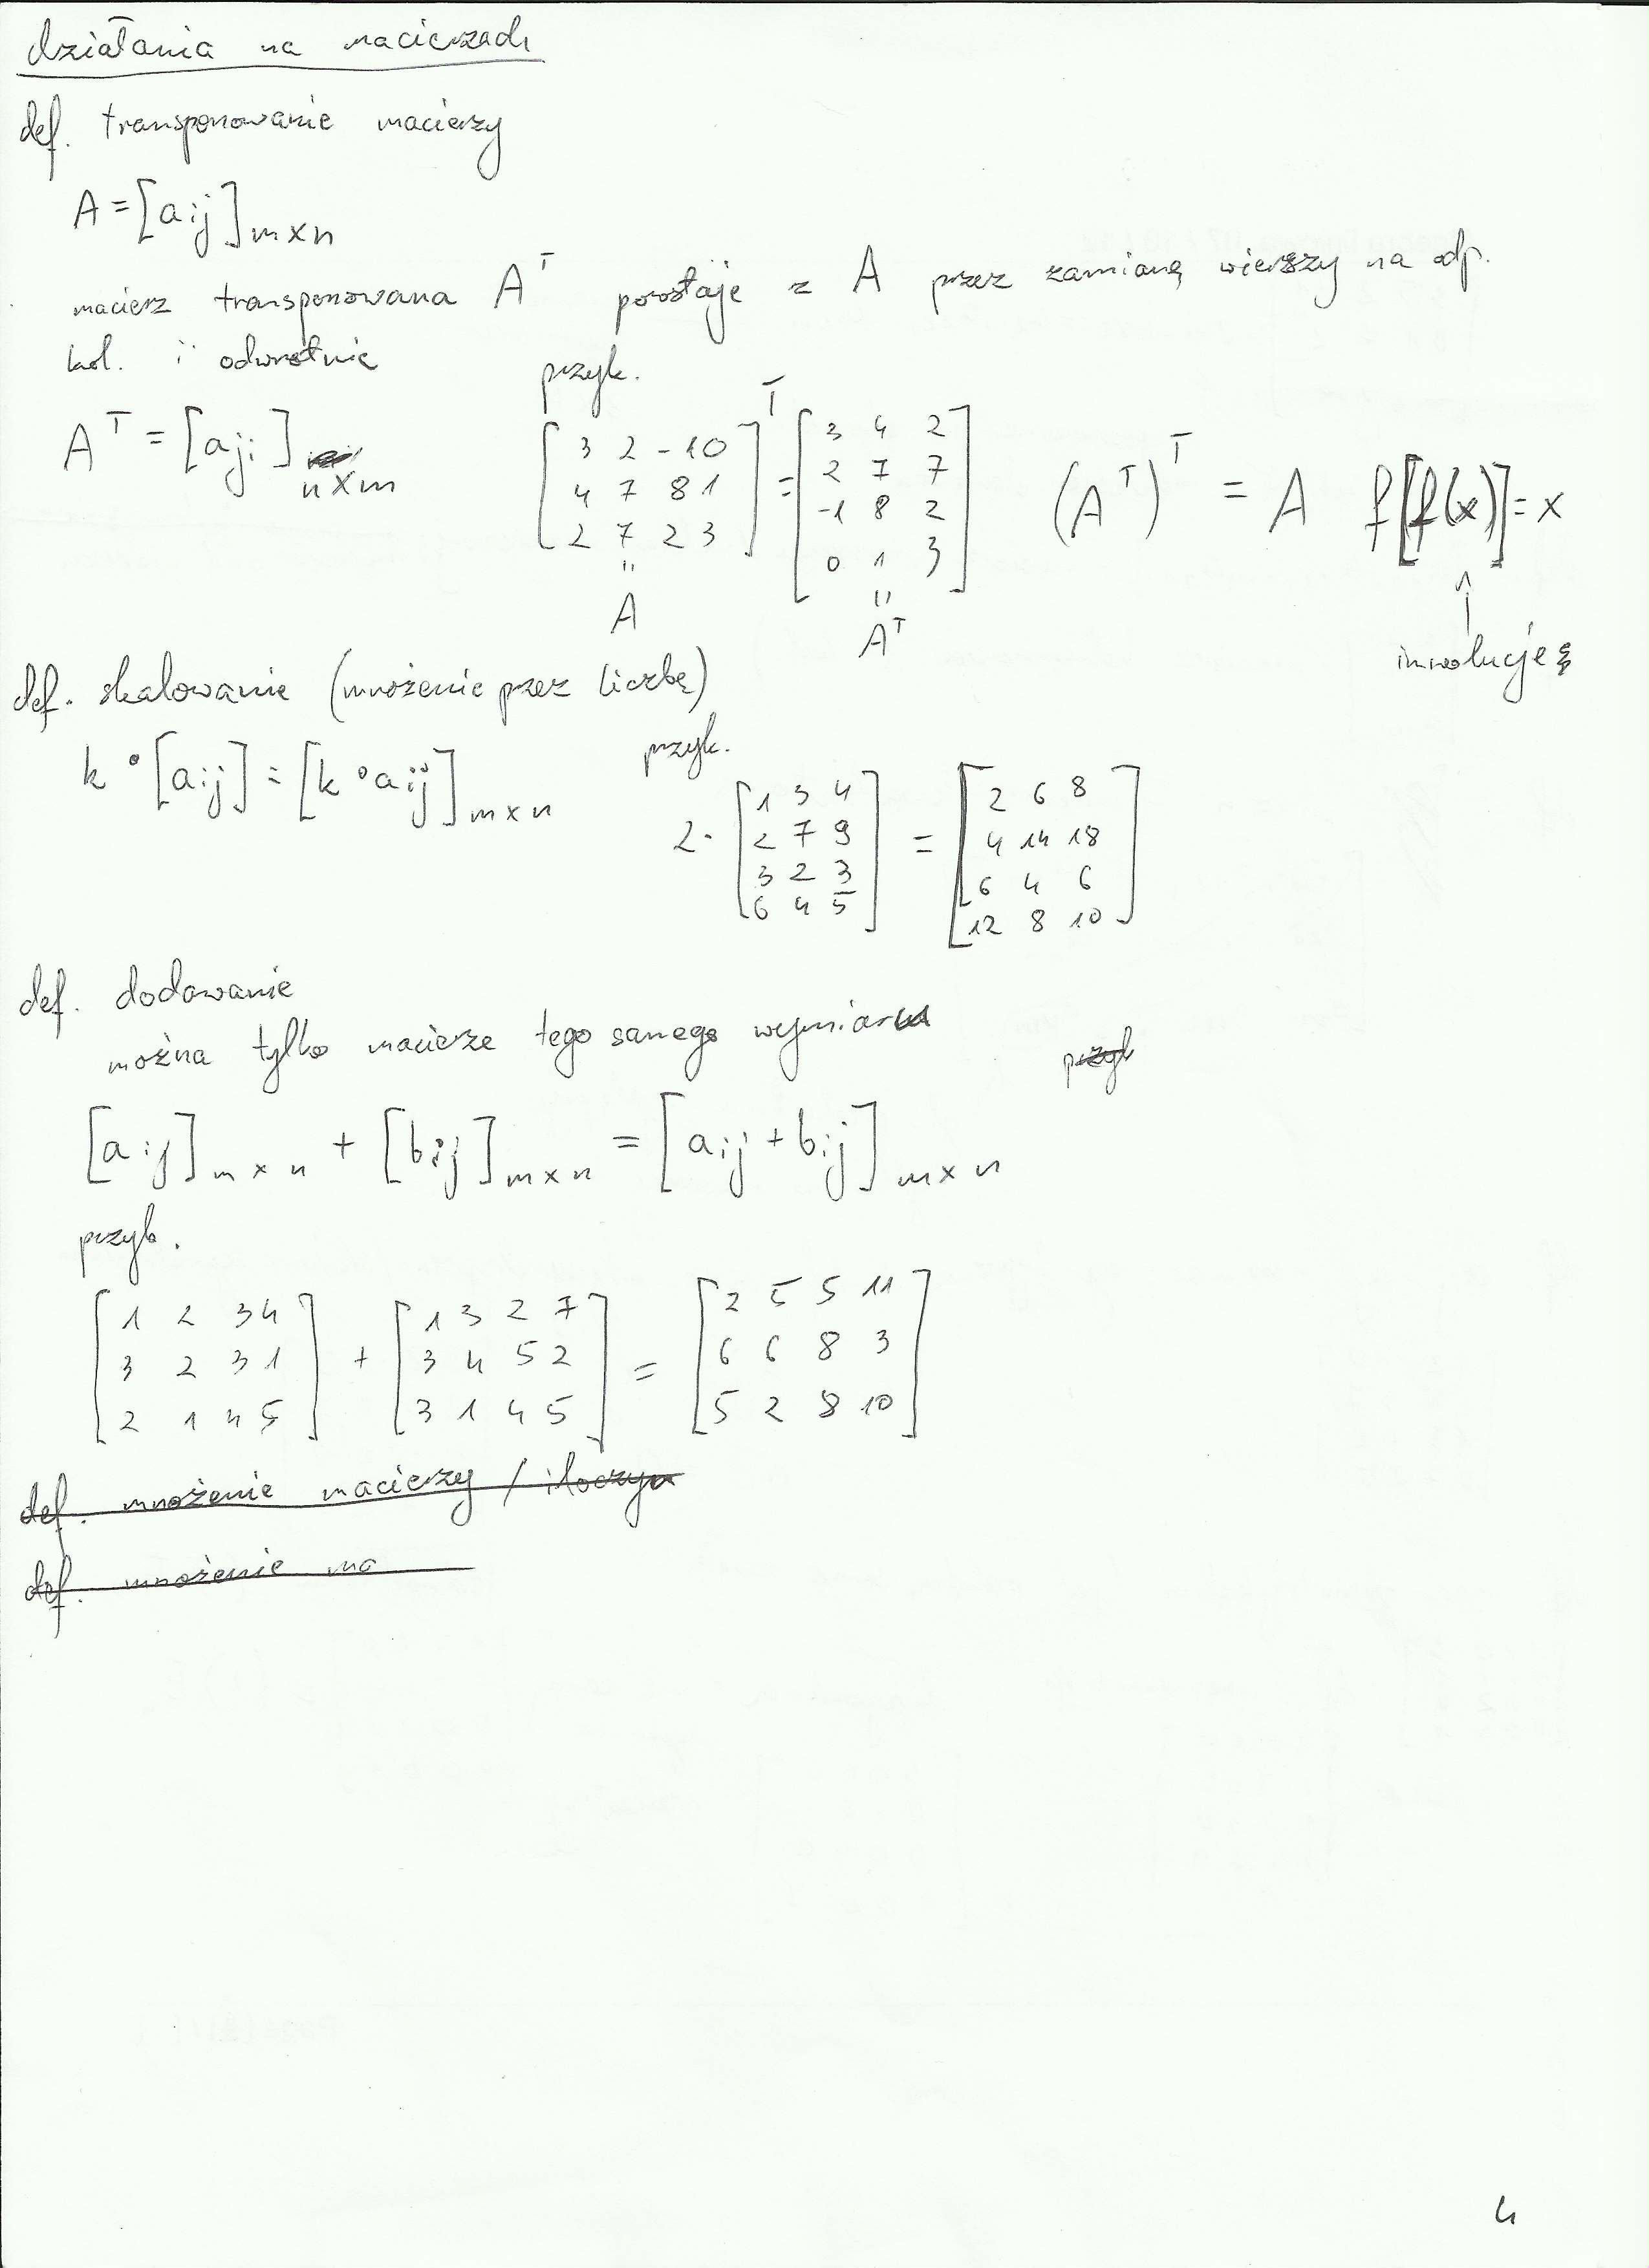 działania na macierzach
def. transponowanie macierzy
A = [aij]m×n
macierz transponowana A^T powstaje z A przez zamianę wierszy na odp.
kol. i odwrotnie
przyk.
A^T = [aji]n×m
[3 2 -1 0
4 7 8 1
2 7 2 3]^T = [3 4 2
2 7 7
-1 8 2
0 1 3]
(A^T)^T = A f[f(x)] = x
"
A
"
A^T
↑
inwolucje
def. skalowanie (mnożenie przez liczbę)
k · [aij] = [k · aij]m×n
przyk.
2 · [1 3 4
2 7 9
3 2 3
6 4 5] = [2 6 8
4 14 18
6 4 6
12 8 10]
def. dodawanie
można tylko macierze tego samego wymiaru
przyk
[aij]m×n + [bij]m×n = [aij + bij]m×n
przyk.
[1 2 3 4
3 2 3 1
2 1 4 5] + [1 3 2 7
3 4 5 2
3 1 4 5] = [2 5 5 11
6 6 8 3
5 2 8 10]
def. mnożenie macierzy / iloczyn
def. mnożenie ma
4